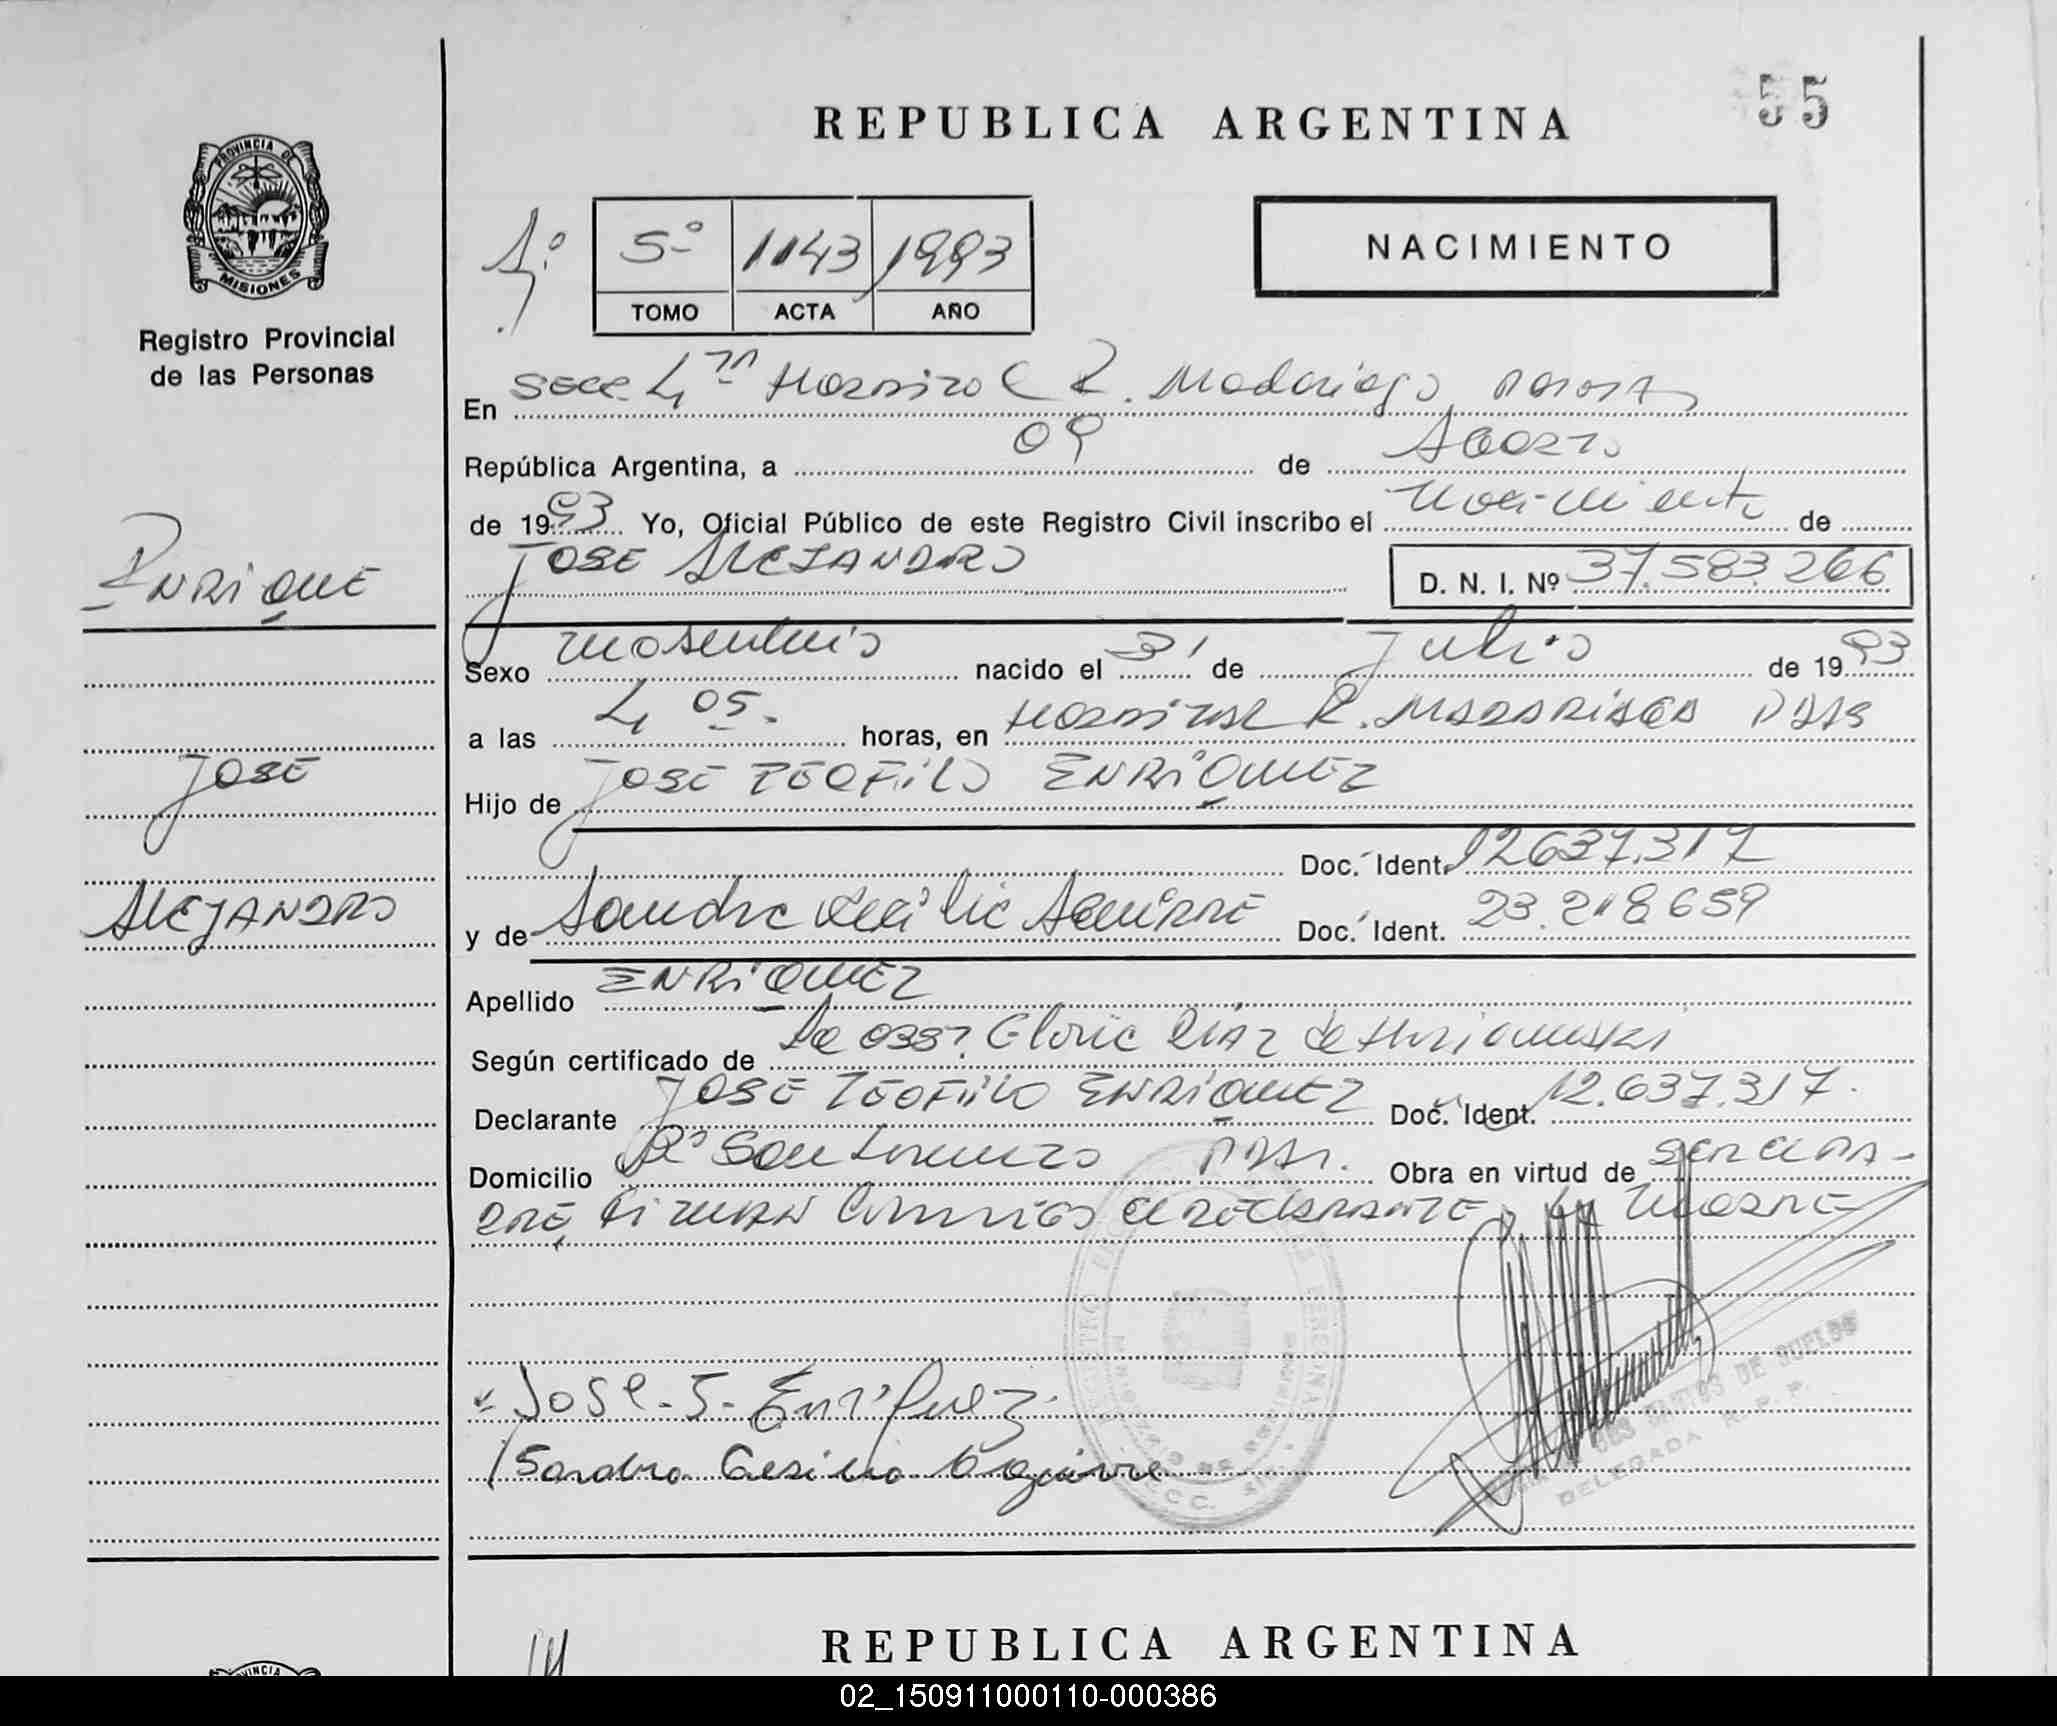 55
REPUBLICA ARGENTINA
PROVINCIA DE
MISIONES
Registro Provincial
de las Personas
5º 1143 1993
TOMO ACTA AÑO
NACIMIENTO
En Secc. 4ta R. Madariaga
República Argentina, a 09 de Agosto
de 1993 Yo, Oficial Público de este Registro Civil inscribo el Nacimiento de
JOSE ALEJANDRO D. N. I. Nº 37.583.266
ENRIQUE
JOSE
ALEJANDRO
Sexo masculino nacido el 31 de Julio de 1993
a las 4 05. horas, en HOSPITAL R. MADARIAGA PDAS
Hijo de JOSE TEOFILO ENRIQUEZ
Doc. Ident. 12637.317
y de Sandra Cecilia Aguirre Doc. Ident. 23.218.659
Apellido ENRIQUEZ
Según certificado de La Obst. Gloria Diaz de
Declarante JOSE TEOFILO ENRIQUEZ Doc. Ident. 12.637.317.
Domicilio Bº San Lorenzo Pdas. Obra en virtud de ser el PA-
DRE, FIRMAN Conmigo el DECLARANTE y MADRE
Jose - T - Enriquez
Sandra Cesilia Aguirre
DOS SANTOS DE DUFLOS
DELEGADA R. P. P.
REPUBLICA ARGENTINA
02_150911000110-000386